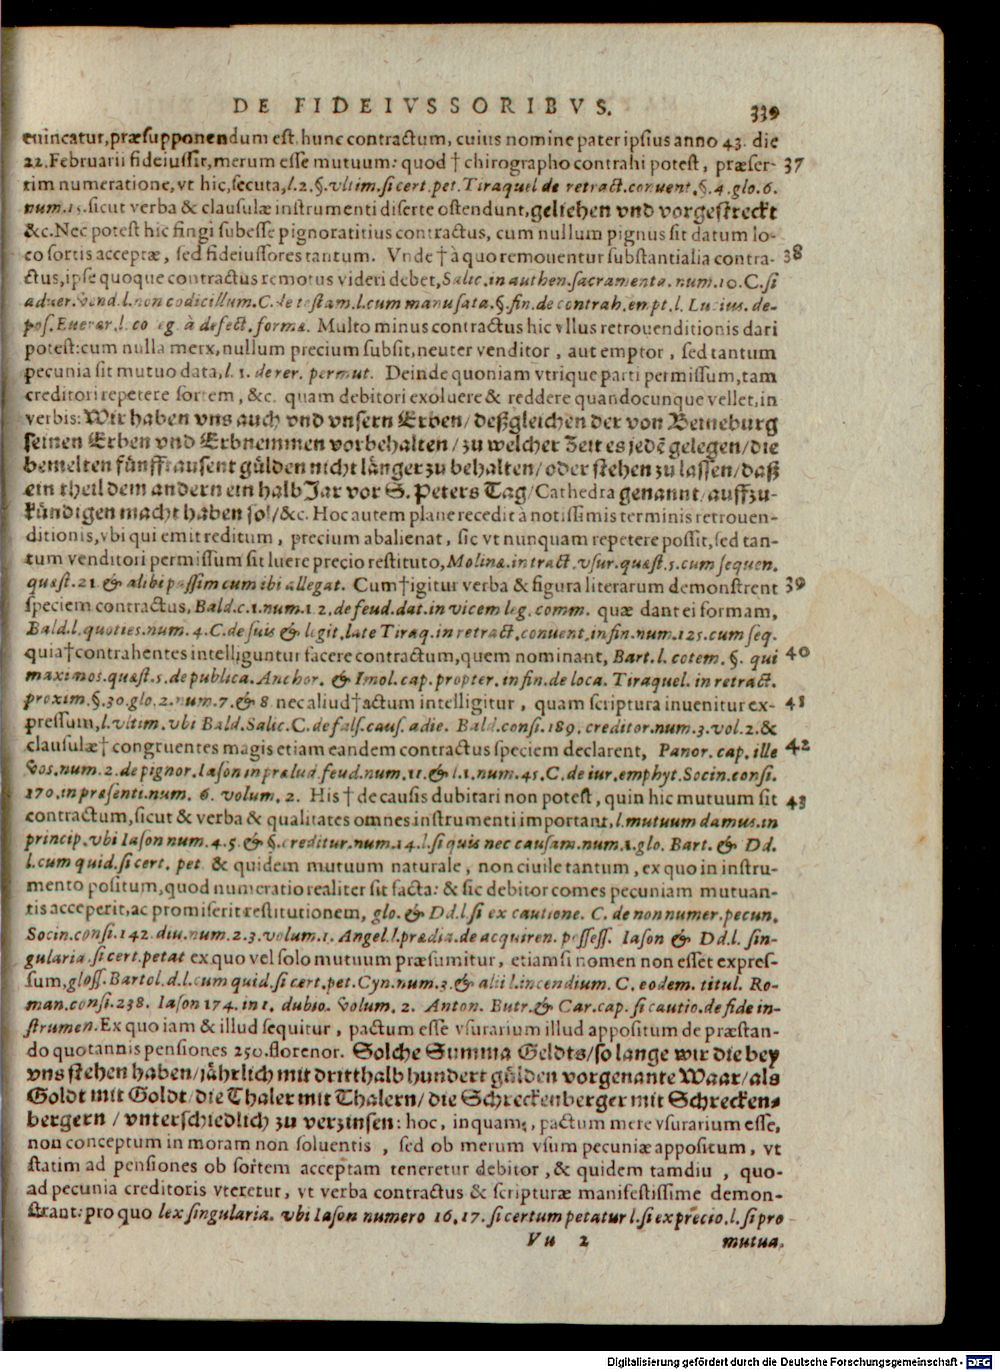 DE FIDEIVSSORIBVS. 339
euincatur, præsupponendum est hunc contractum, cuius nomine pater ipsius anno 43. die
22. Februarii fideiussit, merum esse mutuum: quod † chirographo contrahi potest, præser- 37
tim numeratione, vt hic, secuta, l. 2. §. vltim. si cert. pet. Tiraquel de retract. conuent. §. 4. glo. 6.
num. 15. sicut verba & clausulæ instrumenti diserte ostendunt, geliehen vnd vorgestreckt
&c. Nec potest hic fingi subesse pignoratitius contractus, cum nullum pignus sit datum lo-
co sortis acceptæ, sed fideiussores tantum. Vnde † à quo remouentur substantialia contra- 38
ctus, ipse quoque contractus remotus videri debet, Salic. in authen. sacramenta. num. 10. C. si
aduer. vend. l. non codicillum. C. de testam. l. cum manusata. §. fin. de contrah. empt. l. Lucius. de-
pos. Euerar. l. co eg. à defect. formæ. Multo minus contractus hic vllus retrouenditionis dari
potest: cum nulla merx, nullum precium subsit, neuter venditor, aut emptor, sed tantum
pecunia sit mutuo data, l. 1. de rer. permut. Deinde quoniam vtrique parti permissum, tam
creditori repetere sortem, &c. quam debitori exoluere & reddere quandocunque vellet, in
verbis: Wir haben vns auch vnd vnsern Erben / deßgleichen der von Beineburg
seinen Erben vnd Erbnemmen vorbehalten / zu welcher Zeit es jedē gelegen / die
bemelten fünfftausent gülden nicht länger zu behalten / oder stehen zu lassen / daß
ein theil dem andern ein halb Jar vor S. Peters Tag / Cathedra genannt / auffzu-
kündigen macht haben sol / &c. Hoc autem plane recedit à notissimis terminis retrouen-
ditionis, vbi qui emit reditum, precium abalienat, sic vt nunquam repetere possit, sed tan-
tum venditori permissum sit luere precio restituto, Molinæ. in tract. vsur. quæst. 5. cum sequen.
quæst. 21. & alibi passim cum ibi allegat. Cum † igitur verba & figura literarum demonstrent 39
speciem contractus, Bald. c. 1. num. 12. de feud. dat. in vicem leg. comm. quæ dant ei formam,
Bald. l. quoties. num. 4. C. de suis & legit. late Tiraq. in retract. conuent. in fin. num. 125. cum seq.
quia † contrahentes intelliguntur facere contractum, quem nominant, Bart. l. cotem. §. qui 40
maximos. quæst. 5. de publica. Anchor. & Imol. cap. propter. in fin. de loca. Tiraquel. in retract.
proxim. §. 30. glo. 2. num. 7. & 8 nec aliud † actum intelligitur, quam scriptura inuenitur ex- 41
pressum, l. vltim. vbi Bald. Salic. C. de fals. caus. adie. Bald. consi. 189. creditor. num. 3. vol. 2. &
clausulæ † congruentes magis etiam eandem contractus speciem declarent, Panor. cap. ille 42
vos. num. 2. de pignor. Iason in prælud. feud. num. 11. & l. 1. num. 45. C. de iur. emphyt. Socin. consi.
170. in præsenti. num. 6. volum. 2. His † de causis dubitari non potest, quin hic mutuum sit 43
contractum, sicut & verba & qualitates omnes instrumenti important, l. mutuum damus. in
princip. vbi Iason num. 4. 5. & §. creditur. num. 14. l. si quis nec causam. num. 1. glo. Bart. & Dd.
l. cum quid. si cert. pet. & quidem mutuum naturale, non ciuile tantum, ex quo in instru-
mento positum, quod numeratio realiter sit facta: & sic debitor comes pecuniam mutuan-
tis acceperit, ac promiserit restitutionem, glo. & Dd. l. si ex cautione. C. de non numer. pecun.
Socin. consi. 142. diu. num. 2. 3. volum. 1. Angel. l. prædia. de acquiren. possess. Iason & Dd. l. sin-
gularia. si cert. petat ex quo vel solo mutuum præsumitur, etiamsi nomen non esset expres-
sum, gloss. Bartol. d. l. cum quid. si cert. pet. Cyn. num. 3. & alii l. incendium. C. eodem. titul. Ro-
man. consi. 238. Iason 174. in 1. dubio. volum. 2. Anton. Butr. & Car. cap. si cautio. de fide in-
strumen. Ex quo iam & illud sequitur, pactum esse vsurarium illud appositum de præstan-
do quotannis pensiones 250. florenor. Solche Summa Geldts / so lange wir die bey
vns stehen haben / jährlich mit dritthalb hundert gülden vorgenante Waar / als
Goldt mit Goldt / die Thaler mit Thalern / die Schreckenberger mit Schrecken-
bergern / vnterschiedlich zu verzinsen: hoc, inquam, pactum mere vsurarium esse,
non conceptum in moram non soluentis, sed ob merum vsum pecuniæ appositum, vt
statim ad pensiones ob sortem acceptam teneretur debitor, & quidem tamdiu, quo-
ad pecunia creditoris vteretur, vt verba contractus & scripturæ manifestissime demon-
strant: pro quo lex singularia. vbi Iason numero 16. 17. si certum petatur l. si ex precio. l. si pro
Vu 2 mutua.
Digitalisierung gefördert durch die Deutsche Forschungsgemeinschaft - DFG